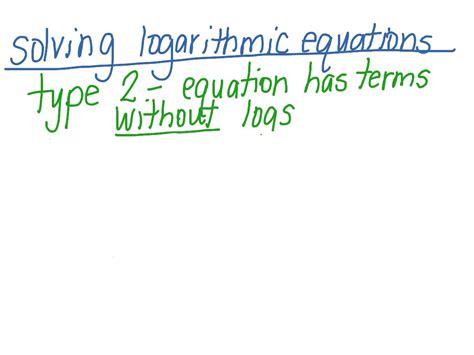 solving logarithmic equations
type 2 - equation has terms
without logs